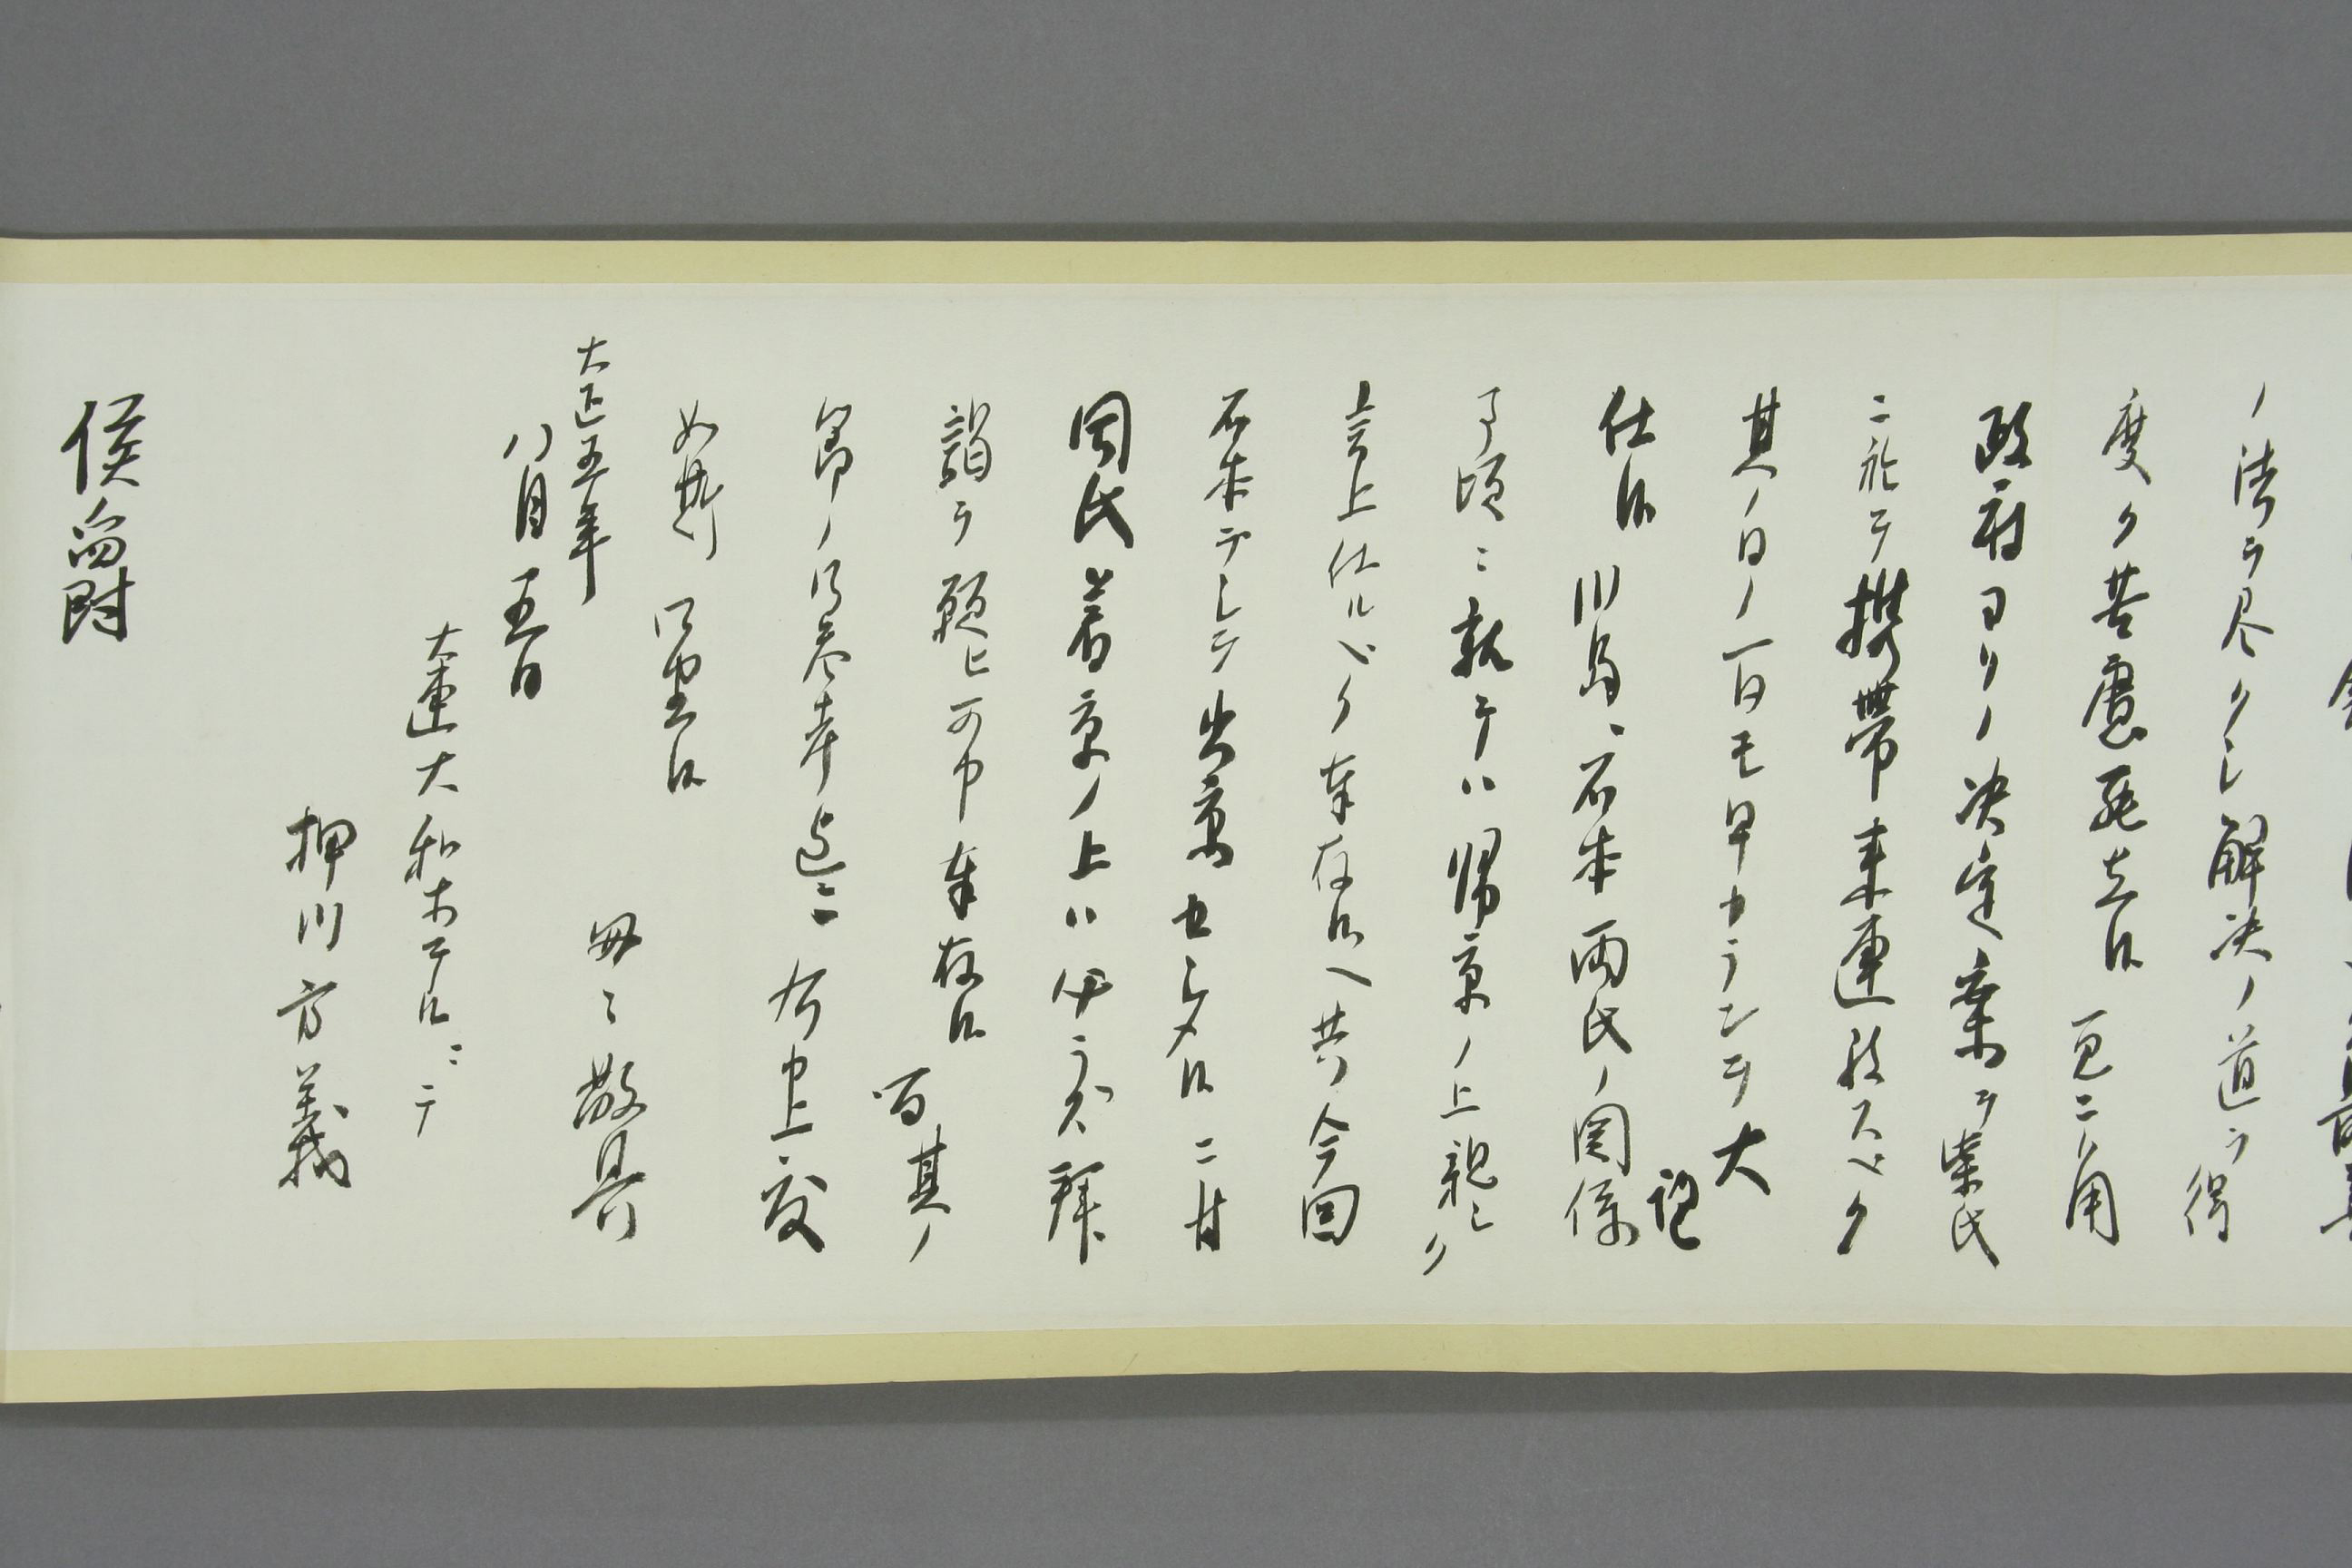 ノ法ヲ尽クシ解決ノ道ヲ得
度ク苦慮罷在候 兎ニ角
政府ヨリノ决定案ヲ柴氏
ニ於テ携帯来連致スベク
其ノ日ノ一日モ早カランヲ大
仕候 川島、石本両氏ノ関係
事項ニ就テハ帰京ノ上親シク
言上仕ルベク奉存候ヘ共今回
石本ヲシテ出京セシメ候ニ付
同氏着京ノ上ハ伊ヲ拝
謁ヲ願ヒ可申奉存候 百其ノ
節ノ御含幸迄ニ 申上度
如斯 御坐候
敬具
大正五年
八月五日
大連大和ホテルニテ
押川方義
侯爵